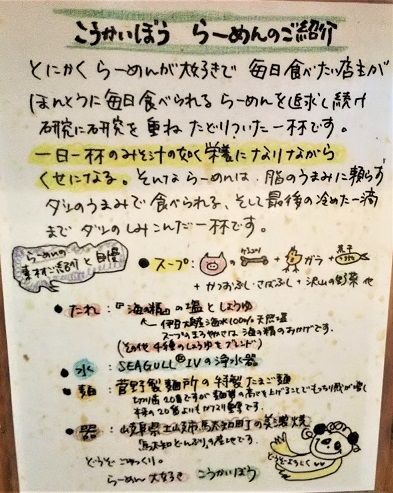 こうかいぼう らーめんのご紹介
とにかく らーめんが大好きで 毎日食べたい店主が
ほんとうに毎日食べられる らーめんを追求し続け
研究に研究を重ね たどりついた一杯です。
一日一杯のみそ汁の如く栄養になりながら
くせになる。そんな らーめんは、脂のうまみに頼らず
ダシのうまみで食べられる、そして最後の冷めた一滴
まで ダシのしみこんだ一杯です。
らーめんの
素材ご紹介と自慢
●スープ: + ゲンコツ + ガラ + 煮干
+ かつおぶし・さばぶし + 沢山の野菜 他
●たれ:『海の精』の塩としょうゆ
伊豆大島海水100%天然塩
スープのまろやかさは 海の精のおかげです。
(その他 4種のしょうゆをブレンド)
●水: SEAGULL®IVの浄水器
●麺: 菅野製麺所の特製たまご麺
切り歯20番ですが
もっちり感が増し
●器: 岐阜県土岐市駄知町の美濃焼
駄知どんぶりの産地です。
どうぞ ごゆっくり。
らーめん 大好き こうかいぼう
どうぞよろしく